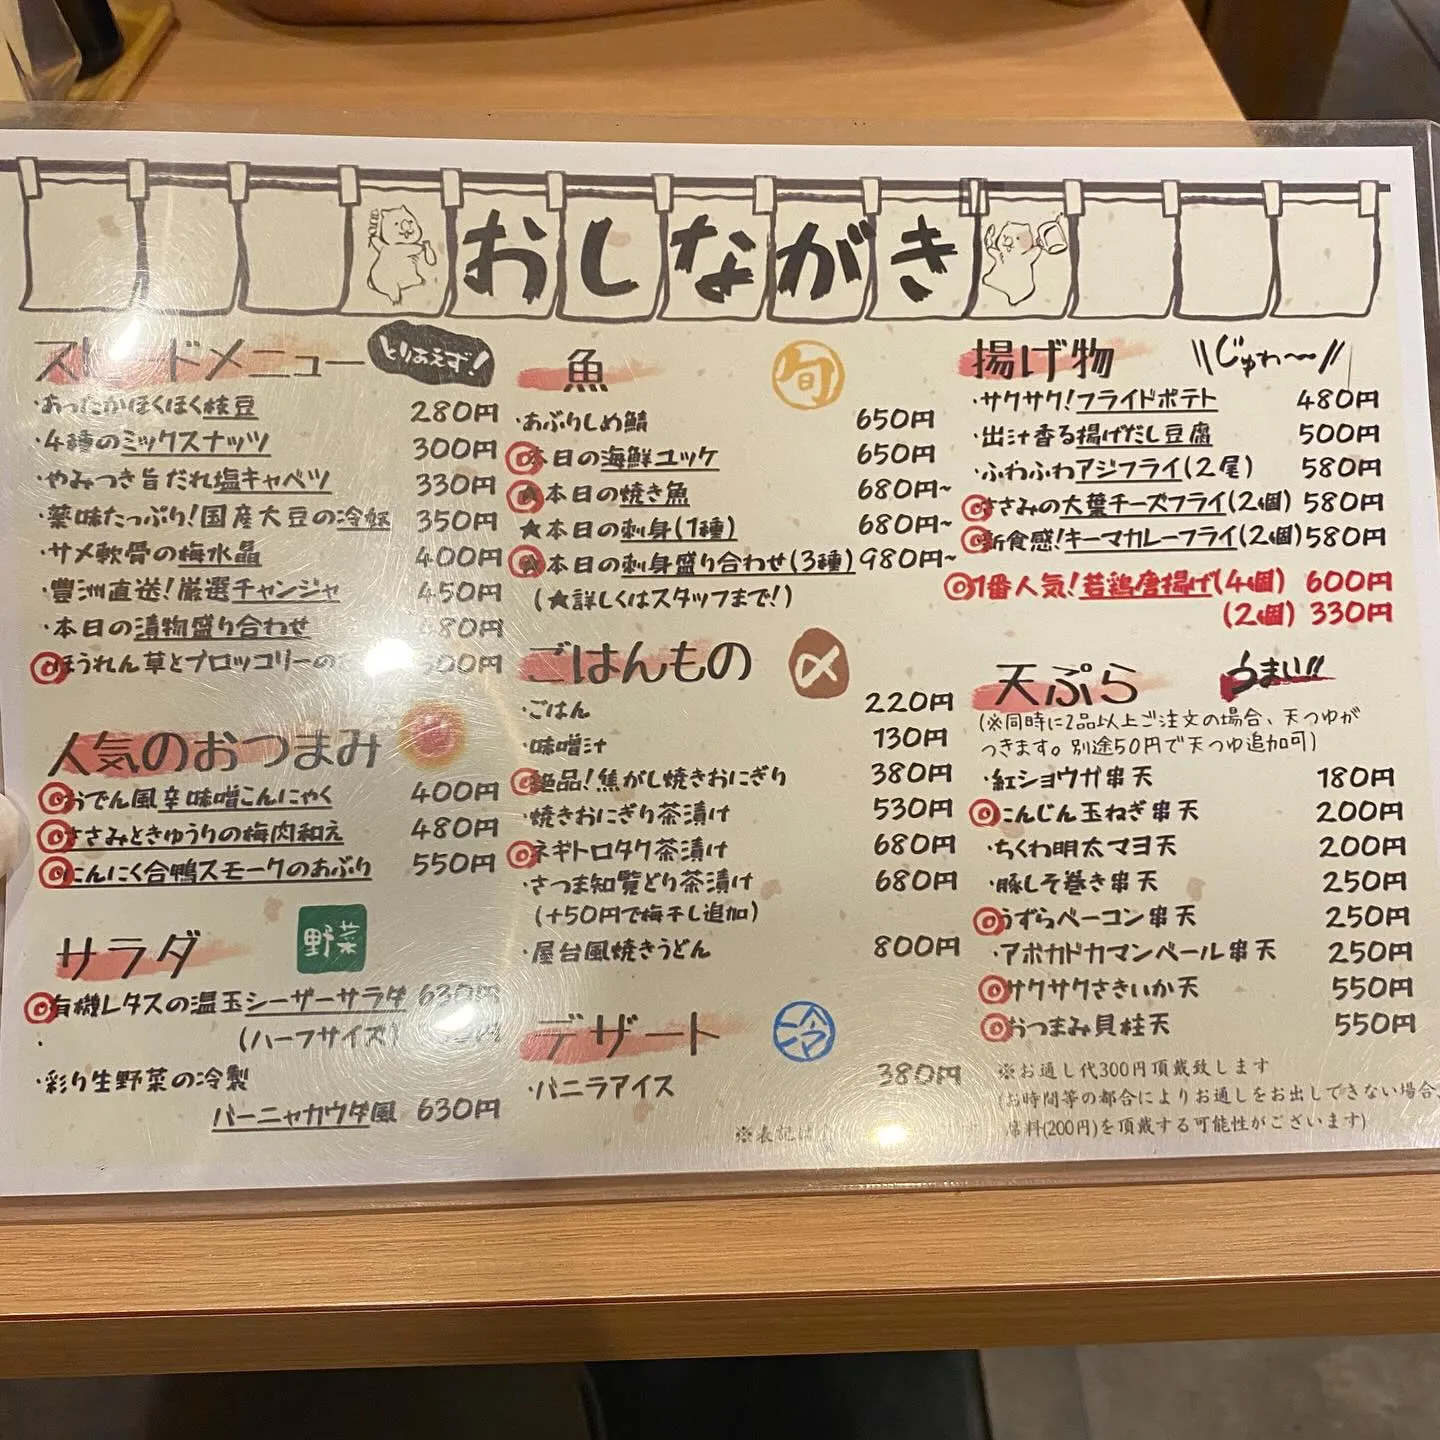 おしながき
スピードメニュー とりあえず!
・あったかほくほく枝豆 280円
・4種のミックスナッツ 300円
・やみつき旨だれ塩キャベツ 330円
・薬味たっぷり!国産大豆の冷奴 350円
・サメ軟骨の梅水晶 400円
・豊洲直送!厳選チャンジャ 450円
・本日の漬物盛り合わせ 480円
◎ほうれん草とブロッコリーの
人気のおつまみ
◎おでん風辛味噌こんにゃく 400円
◎ささみときゅうりの梅肉和え 480円
◎にんにく合鴨スモークのあぶり 550円
サラダ 野菜
◎有機レタスの温玉シーザーサラダ 630円
・ (ハーフサイズ)
・彩り生野菜の冷製
バーニャカウダ風 630円
魚 旬
・あぶりしめ鯖 650円
◎本日の海鮮ユッケ 650円
★本日の焼き魚 680円~
★本日の刺身(1種) 680円~
★本日の刺身盛り合わせ(3種) 980円~
(★詳しくはスタッフまで!)
ごはんもの 〆
・ごはん 220円
・味噌汁 130円
◎絶品!焦がし焼きおにぎり 380円
・焼きおにぎり茶漬け 530円
◎ネギトロタク茶漬け 680円
・さつま知覧どり茶漬け 680円
(+50円で梅干し追加)
・屋台風焼きうどん 800円
デザート 冷
・バニラアイス 380円
※表記は
揚げ物 \\じゅわ〜//
・サクサク!フライドポテト 480円
・出汁香る揚げだし豆腐 500円
・ふわふわアジフライ(2尾) 580円
◎ささみの大葉チーズフライ(2個) 580円
◎新食感!キーマカレーフライ(2個) 580円
◎1番人気!若鶏唐揚げ(4個) 600円
(2個) 330円
天ぷら うまい!!
(※同時に2品以上ご注文の場合、天つゆが
つきます。別途50円で天つゆ追加可)
・紅ショウガ串天 180円
◎にんじん玉ねぎ串天 200円
・ちくわ明太マヨ天 200円
・豚しそ巻き串天 250円
◎うずらベーコン串天 250円
・アボカドカマンベール串天 250円
◎サクサクさきいか天 550円
◎おつまみ貝柱天 550円
※お通し代300円頂戴致します
(お時間等の都合によりお通しをお出しできない場合、
席料(200円)を頂戴する可能性がございます)